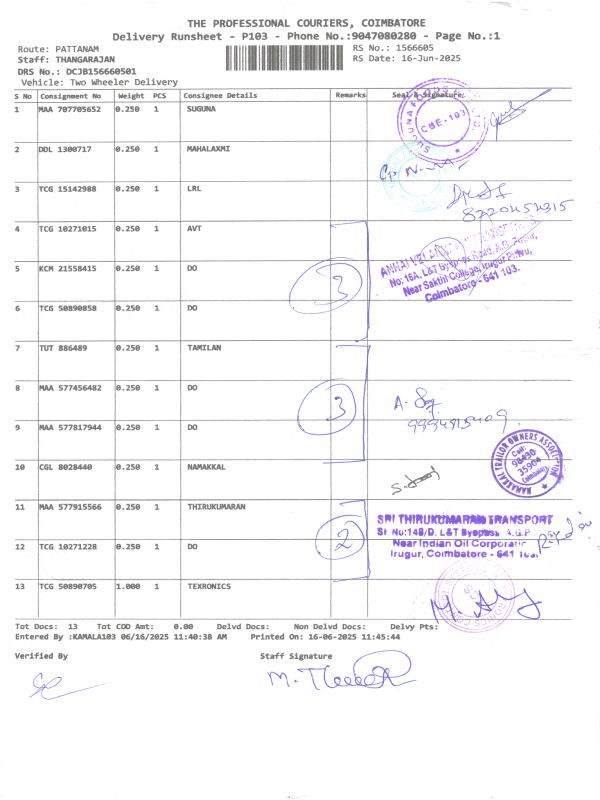 THE PROFESSIONAL COURIERS, COIMBATORE
Delivery Runsheet - P103 - Phone No.:9047080280 - Page No.:1
Route: PATTANAM
RS No.: 1566605
Staff: THANGARAJAN
RS Date: 16-Jun-2025
DRS No.: DCJB156660501
Vehicle: Two Wheeler Delivery
S No Consignment No Weight PCS Consignee Details Remarks Seal & Signature
1 MAA 707705652 0.250 1 SUGUNA
CBE-103
2 DDL 1300717 0.250 1 MAHALAXMI
3 TCG 15142988 0.250 1 LRL
4 TCG 10271015 0.250 1 AVT
5 KCM 21558415 0.250 1 DO
3
No: 16A, L&T Byepass Road, A.G. Pudur,
Near Sakthi College, Irugur Pirivu,
Coimbatore - 641 103.
6 TCG 50890858 0.250 1 DO
7 TUT 886489 0.250 1 TAMILAN
8 MAA 577456482 0.250 1 DO
3
9 MAA 577817944 0.250 1 DO
10 CGL 8028440 0.250 1 NAMAKKAL
NAMAKKAL TRAILOR OWNERS ASSOCIATION
Cell:
98430
35904
11 MAA 577915566 0.250 1 THIRUKUMARAN
SRI THIRUKUMARAN TRANSPORT
Sf No:148/D, L&T Byepass A.G.P
Near Indian Oil Corporatic
Irugur, Coimbatore - 641
12 TCG 10271228 0.250 1 DO
2
13 TCG 50890705 1.000 1 TEXRONICS
Tot Docs: 13 Tot COD Amt: 0.00 Delvd Docs: Non Delvd Docs: Delvy Pts:
Entered By :KAMALA103 06/16/2025 11:40:38 AM Printed On: 16-06-2025 11:45:44
Verified By
Staff Signature